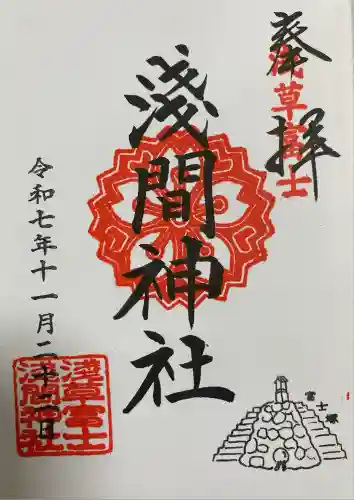 奉拝
浅草富士
淺間神社
令和七年十一月二十二日
淺草富士
浅間神社
富士塚